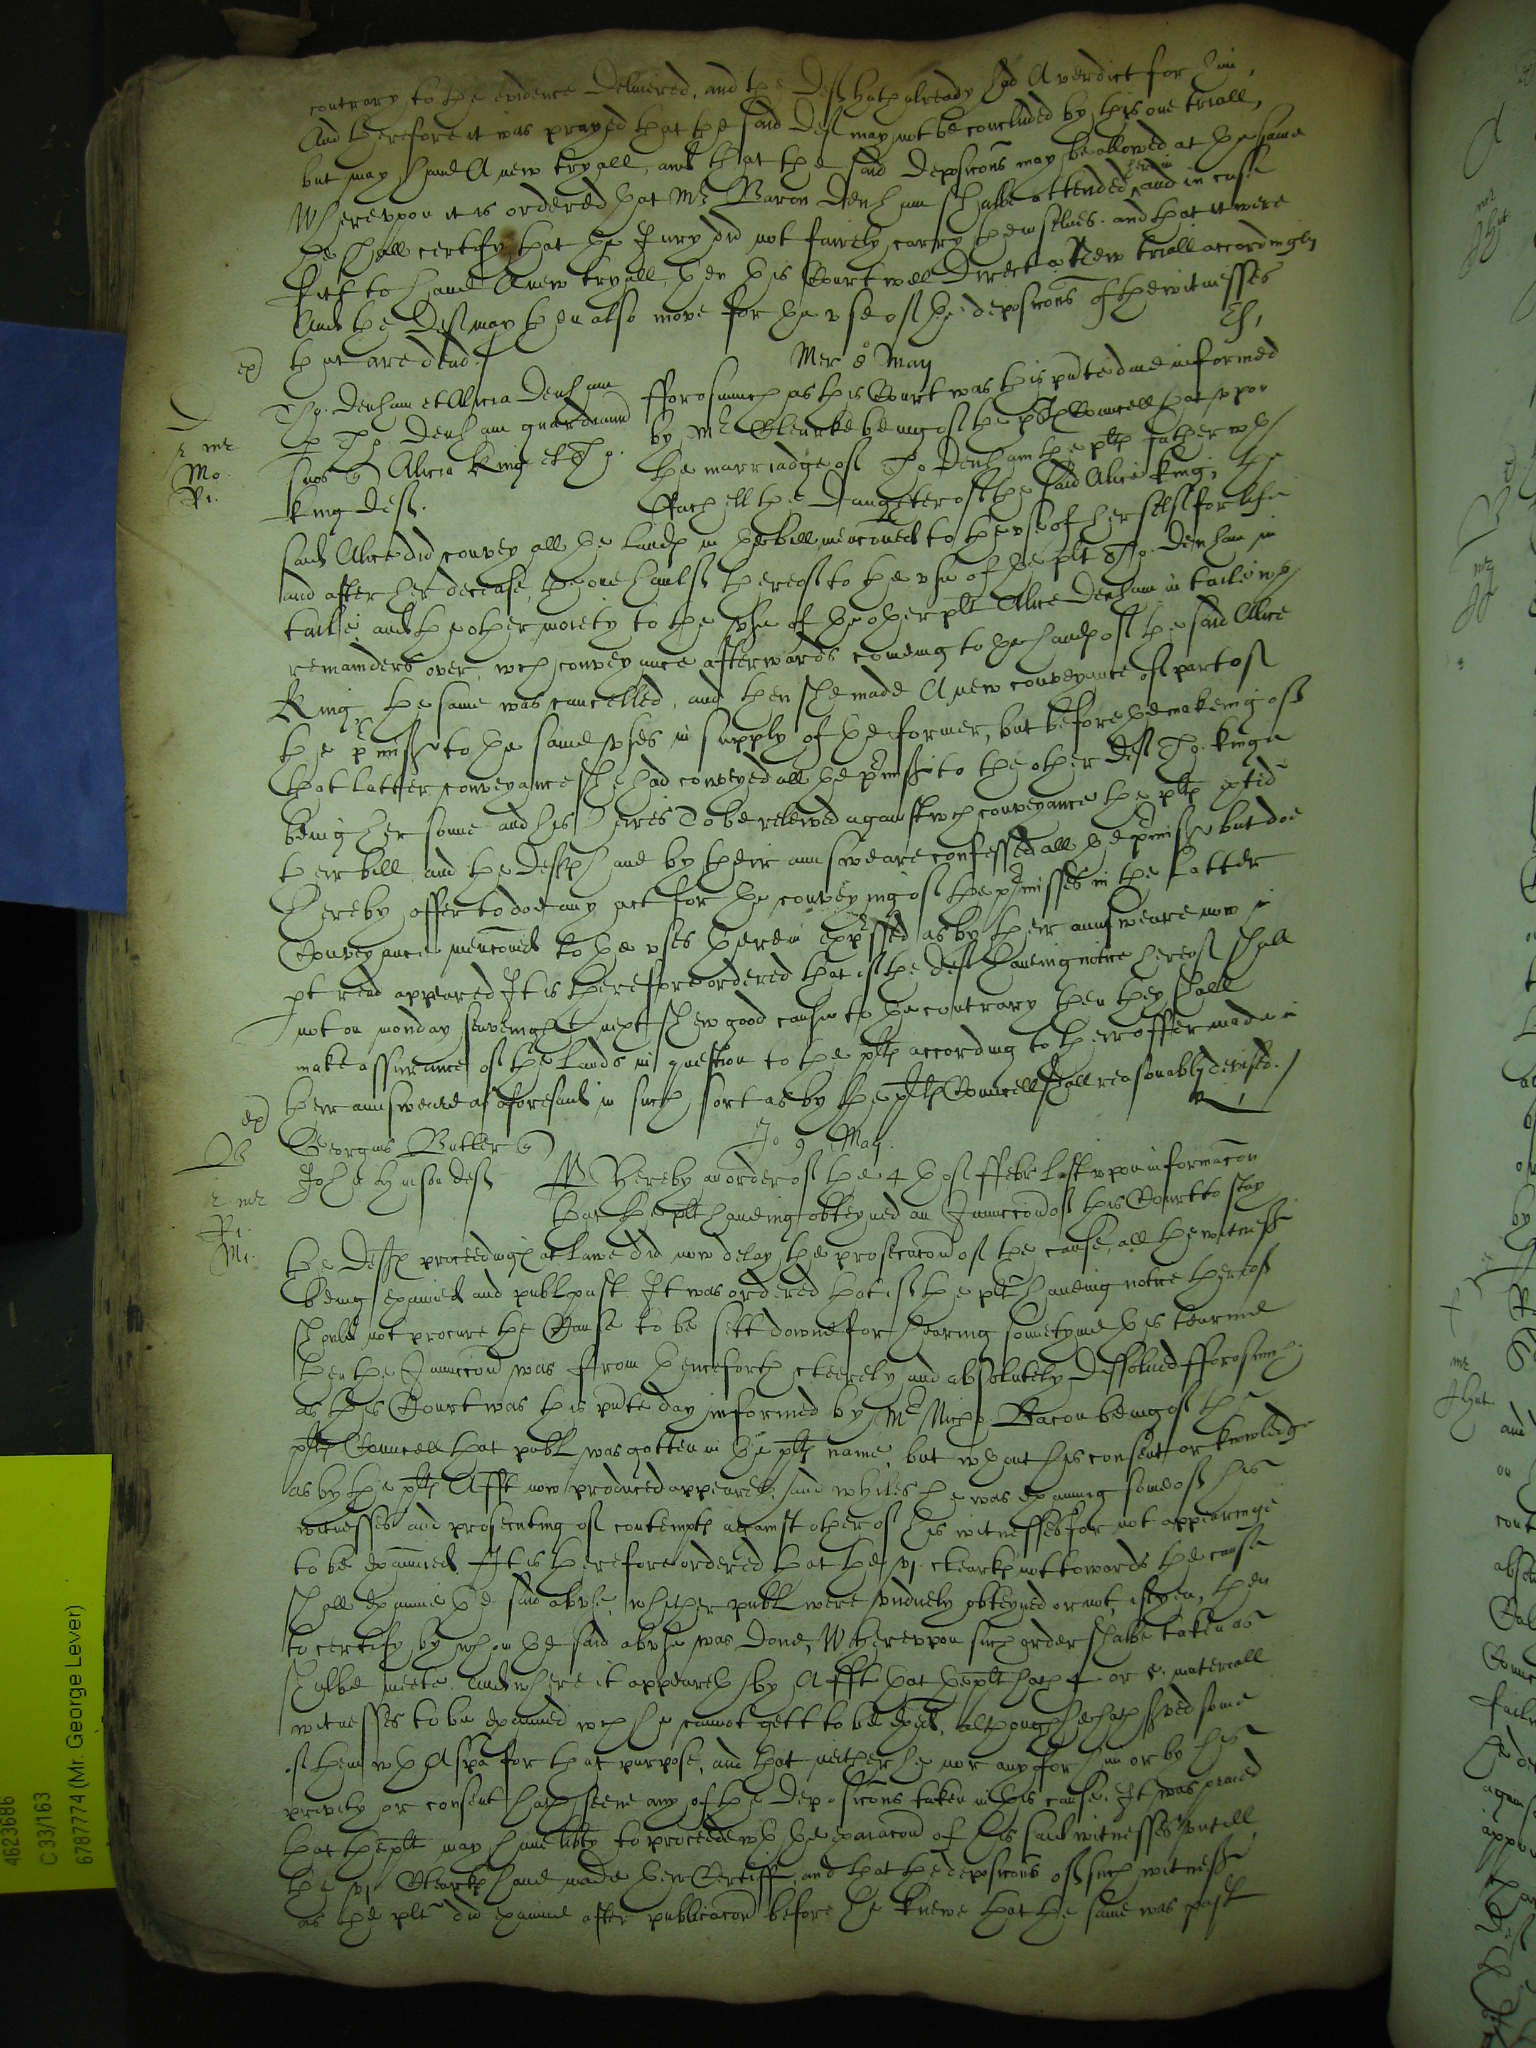 contrary to the evidence delivered, and the deft hath already had A verdict for him,
And therefore it was prayed that the said deft may not be concluded by this one triall,
but may have A new tryall, and that the said deposicons may be allowed at the same
Whereupon it is ordered that Mr Baron Denham shalbe attended herein and in case
he shall certify that the Jury did not fairely carry themselves. and that it were
fitt to have A new tryall, then this Court will direct a New triall accordingly
And the deft may then also move for the use of the deposicons of the witnesses
that are dead
Mer 8 May
Tho. Denham et Alicia Denham
p Tho. Denham guardianum
suos Alicia King et Tho.
King deft.
fforasmuch as this Court was this pnte daie informed
by Mr Clearke being of the plts Councell that upon
the marriadge of Tho Denham the plts father wth
Rachell the Daughter of the said Alice King, the
said Alice did convey all the lands in the bill menconed to the use of her self for life
and after her decease, the one haulf thereof to the use of the plt Tho. Denham in
taile and the other moiety to the use of the other plt Alice Denham in taile wth
remainders over, wch conveyance afterwards coming to the hands of the said Alice
King, the same was cancelled, and then she made A new conveyance of part of
the pmisses to the same uses in supply of the former, but before the makeing of
that latter conveyance she had conveyed all the pmisses to the other deft Tho. King
being her sonne and his heires To be releived against wch conveyance the plts exhibited
their bill and the defts have by their answeare confessed all the pmisses but doe
thereby offer to doe any act for the conveying of the pmisses in the latter
Conveyance menconed to the uses therein expssed as by their answeare now in
pt read appeared It is therefore ordered that if the deft haveing notice hereof shall
not on monday seavenight next shew good cause to the contrary then they shall
make assurance of the lands in question to the plts according to their offer made in
their answeare as aforesaid in such sort as by the plts Councell shall reasonably devised.
Jo 9 May.
Georgius Butler
John Hynson deft
Whereby an order of the 4th of ffebr last upon informacon
that the plt haveing obteyned an Iniunccon of this Court to stay
the defts proceedings at lawe did now delay the prosecucon of the cause, all the witnesses
being examined and publ past. It was ordered that if the plt haveing notice thereof
should not procure the Cause to be sett downe for hearing sometyme this tearme
then the Iniunccon was from thenceforth cleerely and absolutely dissolved fforasmuch
as this Court was this pnte day informed by Mr Nicho. Bacon being of the
plts Councell that publ was gotten in the plts name, but wthout his consent or knowledge
as by the plts Afft now produced appeareth, and whiles he was examining some of his
witnesses and prosecuting of contempts against other of his witnesses for not appearinge
to be examined. It is therefore ordered that the vj. clearks not towards the cause
shall examine the said abuse, whether publ were unduely obteyned or not, if yea, then
to certify by whom the said abuse was done, Whereupon such order shalbe taken as
shalbe meete. And where it appeareth by Afft that the plt hath 4 or 5 materiall
witnesses to be examined wch he cannot gett to be exd, although he hath served some
of them wth A spa for that purpose, and that neither he nor any for him or by his
privity or consent hath seene any of the deposicons taken in this cause. It was praied
that the plt may have libty to proceede wth the examacon of his said witnesses untill
the vj Clearks have made their Certiff, and that the deposicons of such witnesses
as the plt did examine after publicacon before he knewe that the same was past
4623686
C 33/163
6787774 (Mr. George Lever)